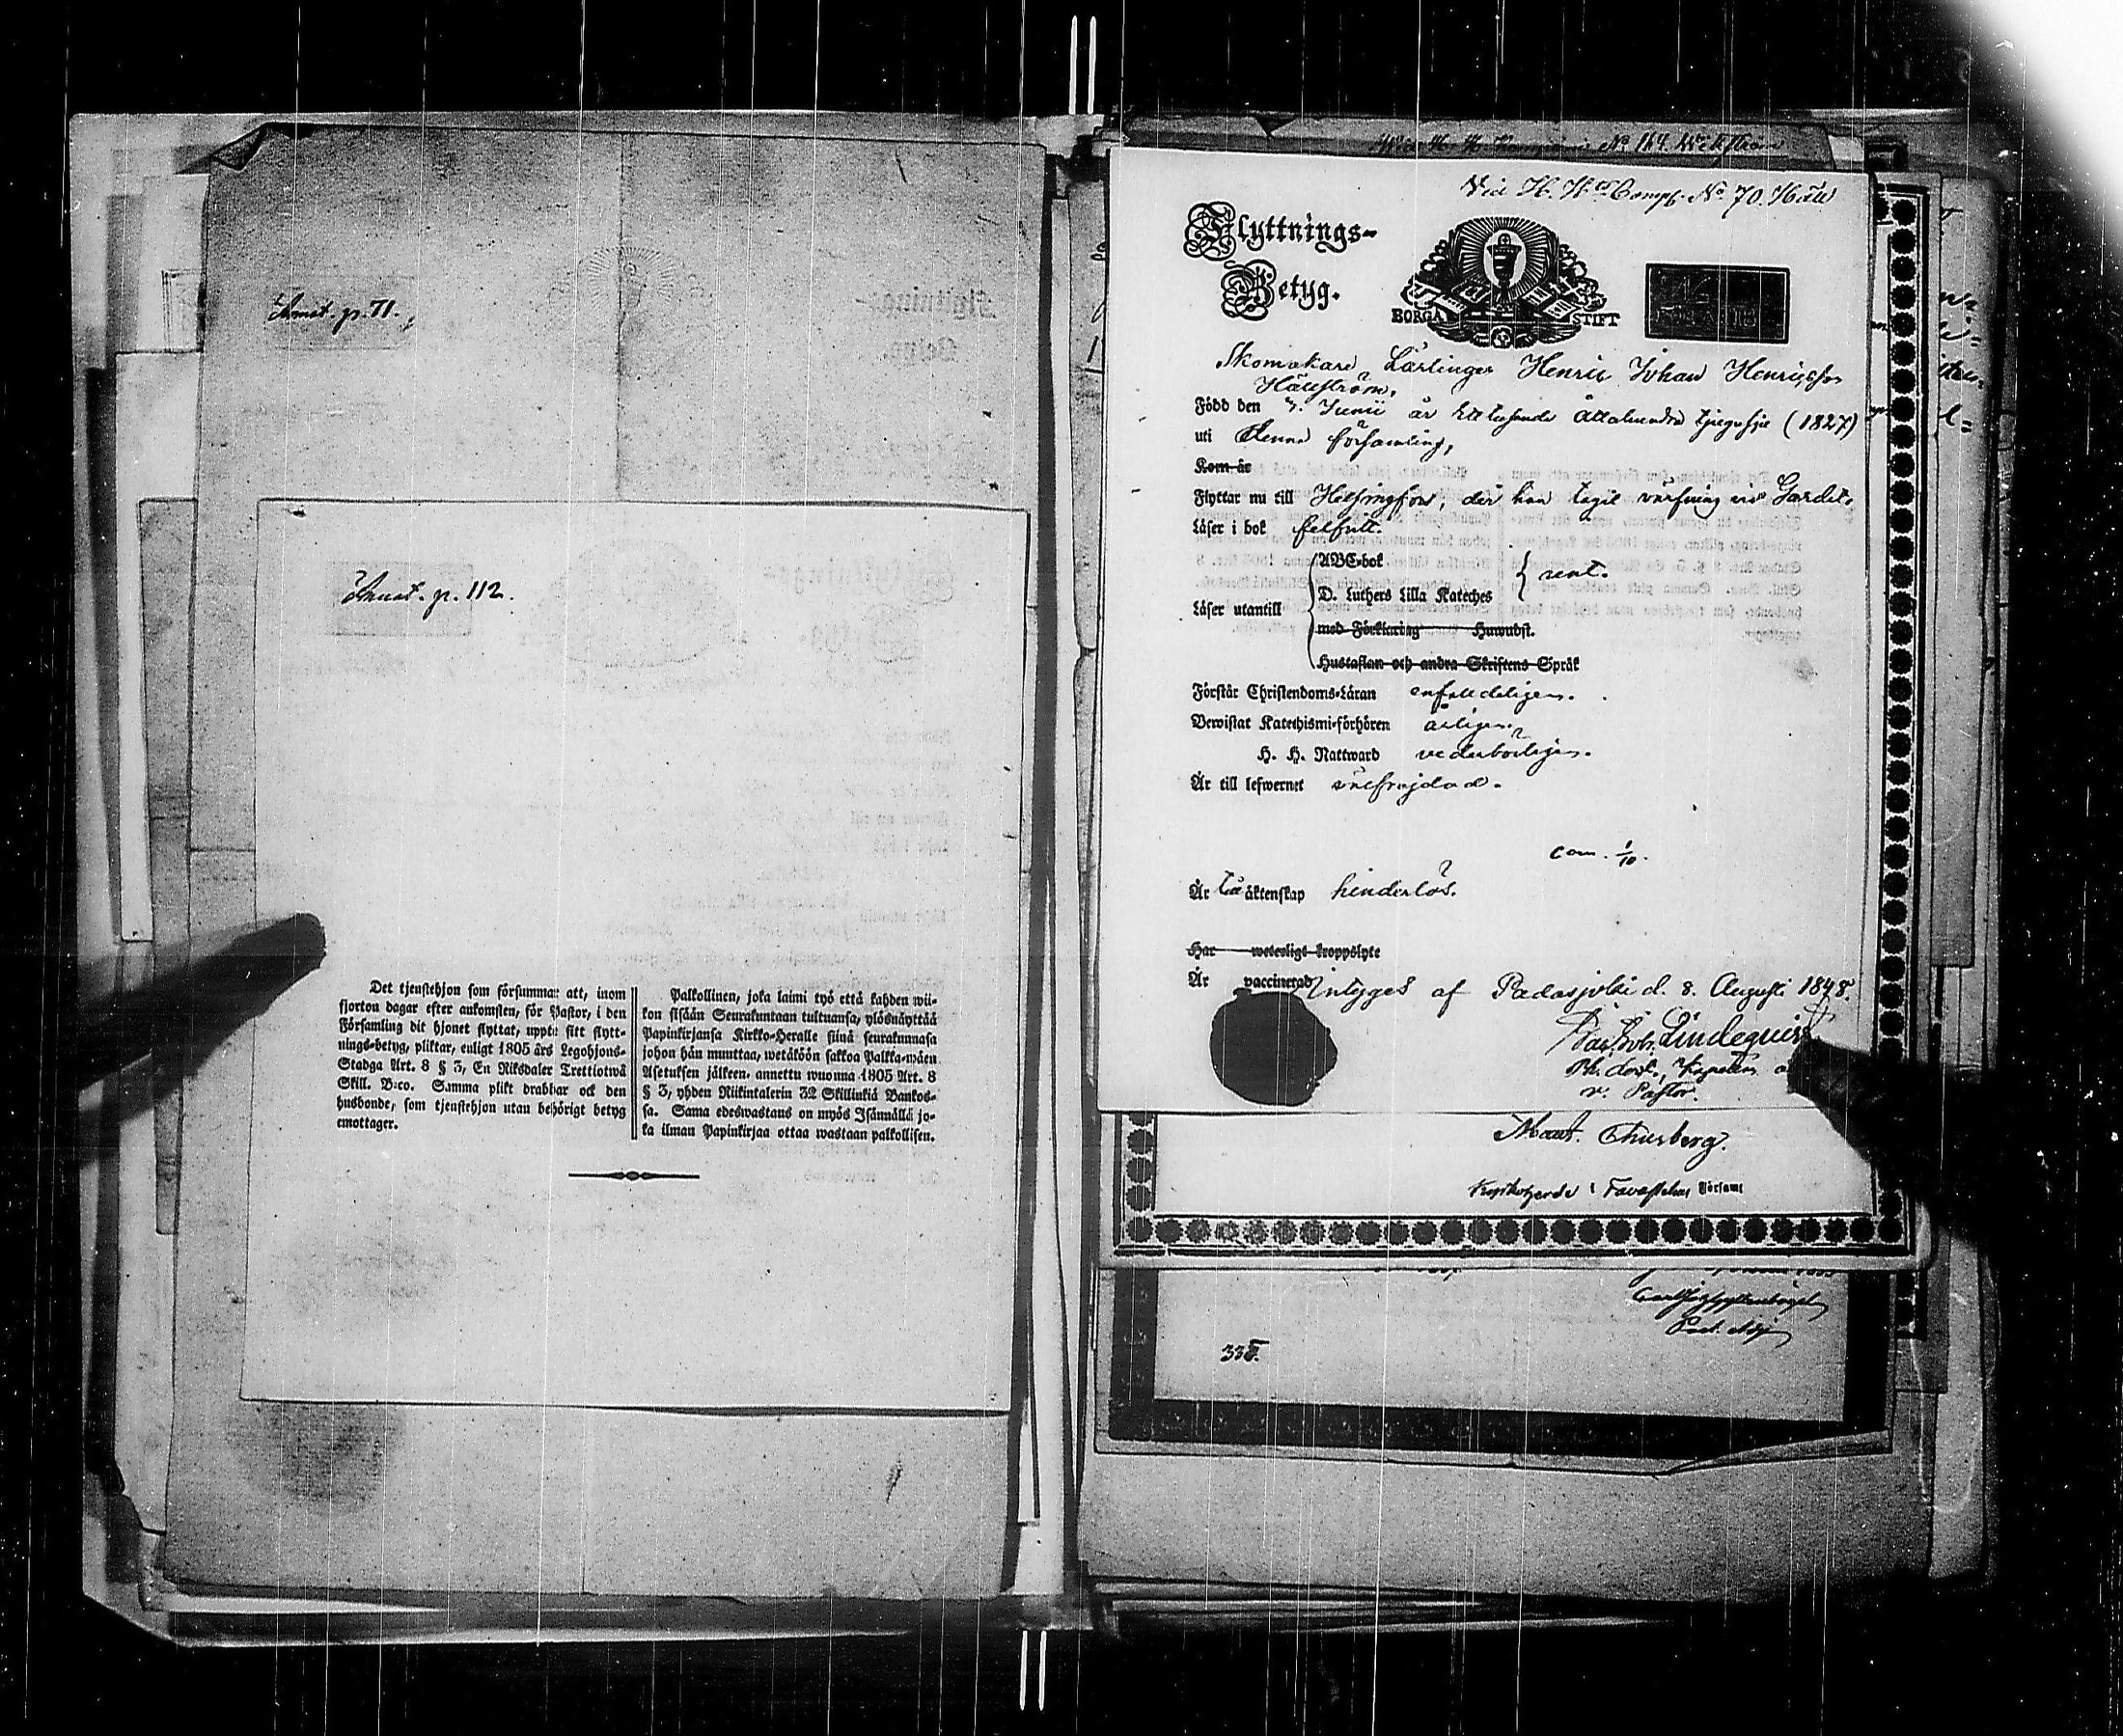 Inmat. p. 71.
Inmat. p. 112.
Det tjenstehjon som försummar att, inom
fjorton dagar efter ankomsten, för Pastor, i den
Församling dit hjonet flyttat, uppte sitt flytt-
nings-betyg, pliktar, enligt 1805 års Legohjons-
Stadga Art. 8 § 3, En Riksdaler Trettiotwå
Skill. B:co. Samma plikt drabbar ock den
husbonde, som tjenstehjon utan behörigt betyg
emottager.
Palkollinen, joka laimi tyó että kahden wii-
kon sisään Seurakuntaan tultuansa, ylösnäyttää
Papinkirjansa Kirkko-Heralle siinä seurakunnasa
johon hän muuttaa, wetäköön sakkoa Palkka-wäen
Asetuksen jälkeen, annettu wuonna 1805 Art. 8
§ 3, yhden Riikintalerin 32 Skillinkiä Bankos-
sa. Sama edeswastaus on myös Isännällä jo-
ka ilman Papinkirjaa ottaa wastaan palkollisen.
No 164.
Vid H. H. Comp. No 70. Häll
Flyttnings-
Betyg.
BORGÅ STIFT
Skomakare Lärlingen Henric Johan Henricsson
Hällström,
Född den 7. Junii år Ettusende Åttahundra tjugusju (1827)
uti denna församling,
Kom år
Flyttar nu till Helsingfors, der han tagit värfning vid Gardet.
Läser i bok felfritt.
Läser utantill
ABC-bok
D. Luthers Lilla Kateches
rent.
med Förklaring Huwudst.
Hustaflan och andra Skriftens Språk
Förstår Christendoms-Läran enfalldeligen.
Bewistat Katechismi-förhören årligen,
H. H. Nattward vederbörligen.
Är till lefwernet välfrejdad.
com. 1/10.
Är till äktenskap hinderlös.
Har weterligt kroppslyte
Är vaccinerad Intygas af Padasjoki d. 8. Augusti 1848.
Lindequist
Kapellan
v. Pastor.
Thusberg.
i Tavastehus Församl